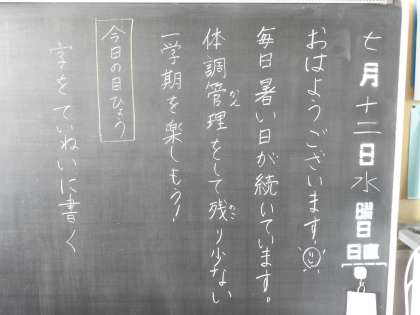 七月十二日水曜日
日直
おはようございます。
毎日暑い日が続いています。
体調管理をして残り少ない
かん
のこ
一学期を楽しもう!
今日の目ひょう
字をていねいに書く